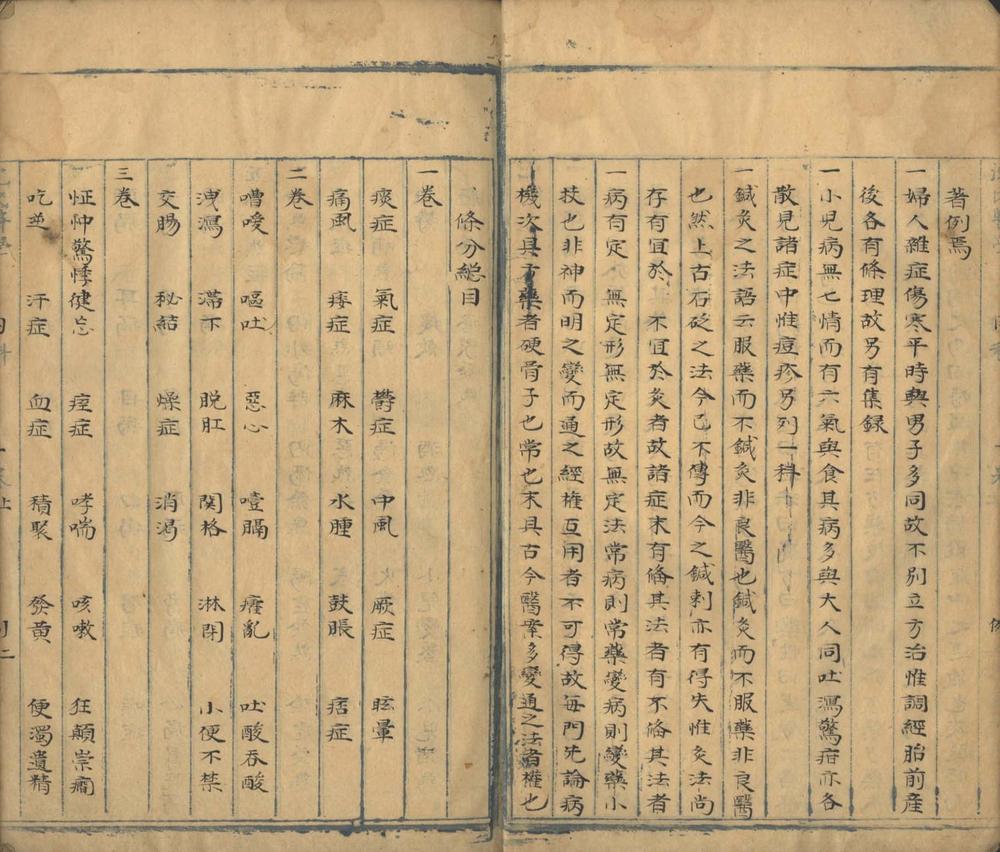 著例焉
一婦人雜症傷寒平時與男子多同故不別立方治惟調經胎前産
後各有條理故另有集録
一小兒病無七情而有六氣與食其病多與大人同吐瀉驚疳亦各
散見諸症中惟痘疹另列一科
一鍼灸之法語云服藥而不鍼灸非良醫也鍼灸而不服藥非良醫
也然上古石砭之法今已不傳而今之鍼刺亦有得失惟灸法尚
存有宜於灸不宜於灸者故諸症末有俻其法者有不俻其法者
一病有定名無定形無定形故無定法常病則常藥變病則變藥小
技也非神而明之變而通之經權互用者不可得故每門先論病
機次具方藥者硬骨子也常也末具古今醫案多變通之法者權也
條分緫目
一卷
痰症 氣症 鬱症 中風 厥症 眩暈
痛風 痿症 麻木 水腫 鼓脹 痞症
二卷
嘈嗳 嘔吐 惡心 噎膈 癨亂 吐酸吞酸
洩瀉 滯下 脱肛 関格 淋閉 小便不禁
交賜 秘結 燥症 消渴
三卷
怔忡驚悸健忘 痓症 哮喘 咳嗽 狂顛祟癎
吃逆 汗症 血症 積聚 發黄 便濁遺精